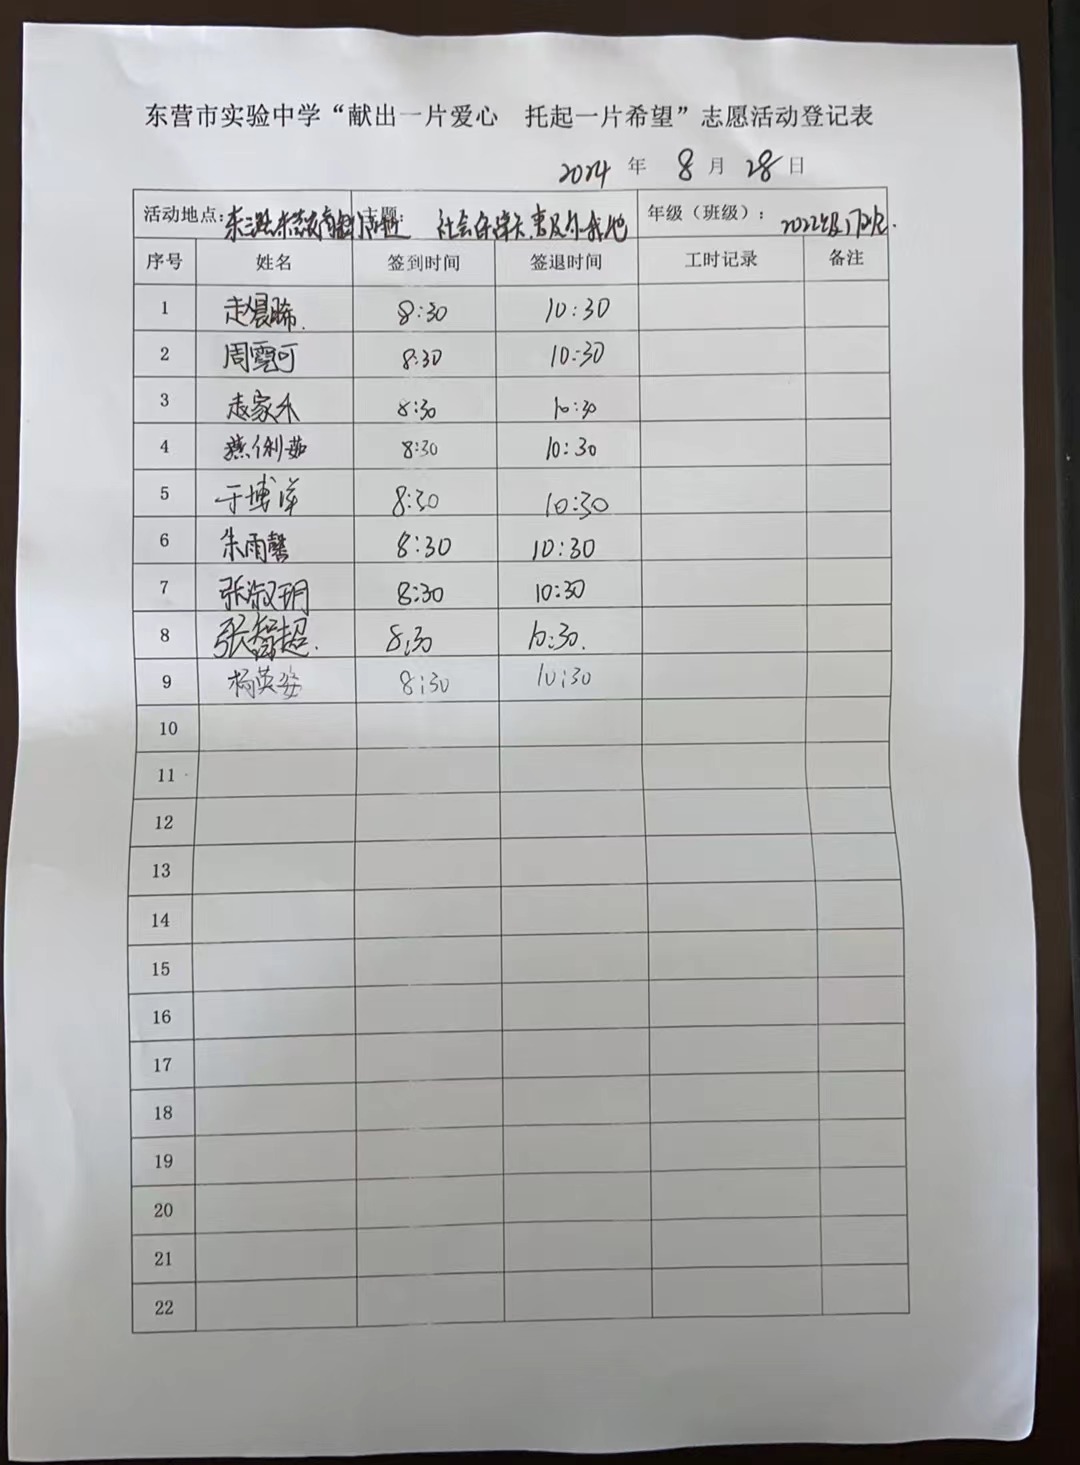 东营市实验中学“献出一片爱心 托起一片希望”志愿活动登记表
2024 年 8 月 28 日
活动地点: 主题: 社会保障卡惠及你我他 年级（班级）: 2022级
序号 姓名 签到时间 签退时间 工时记录 备注
1 赵晨晞. 8:30 10:30
2 周霓可 8:30 10:30
3 赵家禾 8:30 10:30
4 燕俐茹 8:30 10:30
5 于博洋 8:30 10:30
6 朱雨馨 8:30 10:30
7 张淑玥 8:30 10:30
8 张智超. 8:30 10:30.
9 杨英姿 8:30 10:30
10
11
12
13
14
15
16
17
18
19
20
21
22